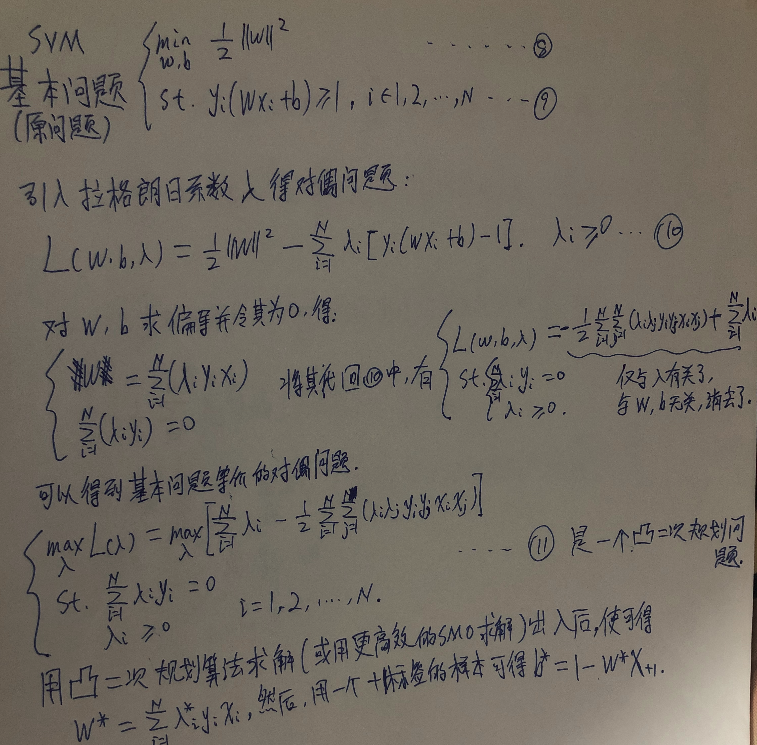 SVM
基本问题
(原问题)
min 1/2 ||W||² ······ ⑧
w,b
st. yᵢ(Wxᵢ+b)≥1, i∈1,2,…,N ···· ⑨
引入拉格朗日系数λ得对偶问题:
L(w,b,λ) = 1/2||W||² - Σᵢ₌₁ᴺ λᵢ[yᵢ(wxᵢ+b)-1]. λᵢ≥0 ··· ⑩
对W,b求偏导并令其为0,得:
W = Σᵢ₌₁ᴺ(λᵢyᵢxᵢ)
Σᵢ₌₁ᴺ(λᵢyᵢ) = 0
将其代回⑩中,有
L(w,b,λ) = -1/2 Σᵢ₌₁ᴺ Σⱼ₌₁ᴺ (λᵢλⱼyᵢyⱼxᵢxⱼ) + Σᵢ₌₁ᴺ λᵢ
st. Σᵢ₌₁ᴺ λᵢyᵢ = 0
λᵢ≥0.
仅与λ有关了,
与W,b无关,消去了.
可以得到基本问题等价的对偶问题.
max L(λ) = max [Σᵢ₌₁ᴺ λᵢ - 1/2 Σᵢ₌₁ᴺ Σⱼ₌₁ᴺ (λᵢλⱼyᵢyⱼxᵢxⱼ)]
λ λ
st. Σᵢ₌₁ᴺ λᵢyᵢ = 0
λᵢ≥0 i=1,2,…,N.
···· ⑪ 是一个凸二次规划问
题.
用凸二次规划算法求解(或用更高效的SMO求解)出λ后,便可得
W* = Σᵢ₌₁ᴺ λᵢ*yᵢxᵢ, 然后,用一个+1标签的样本可得b* = 1-W*X₊₁.